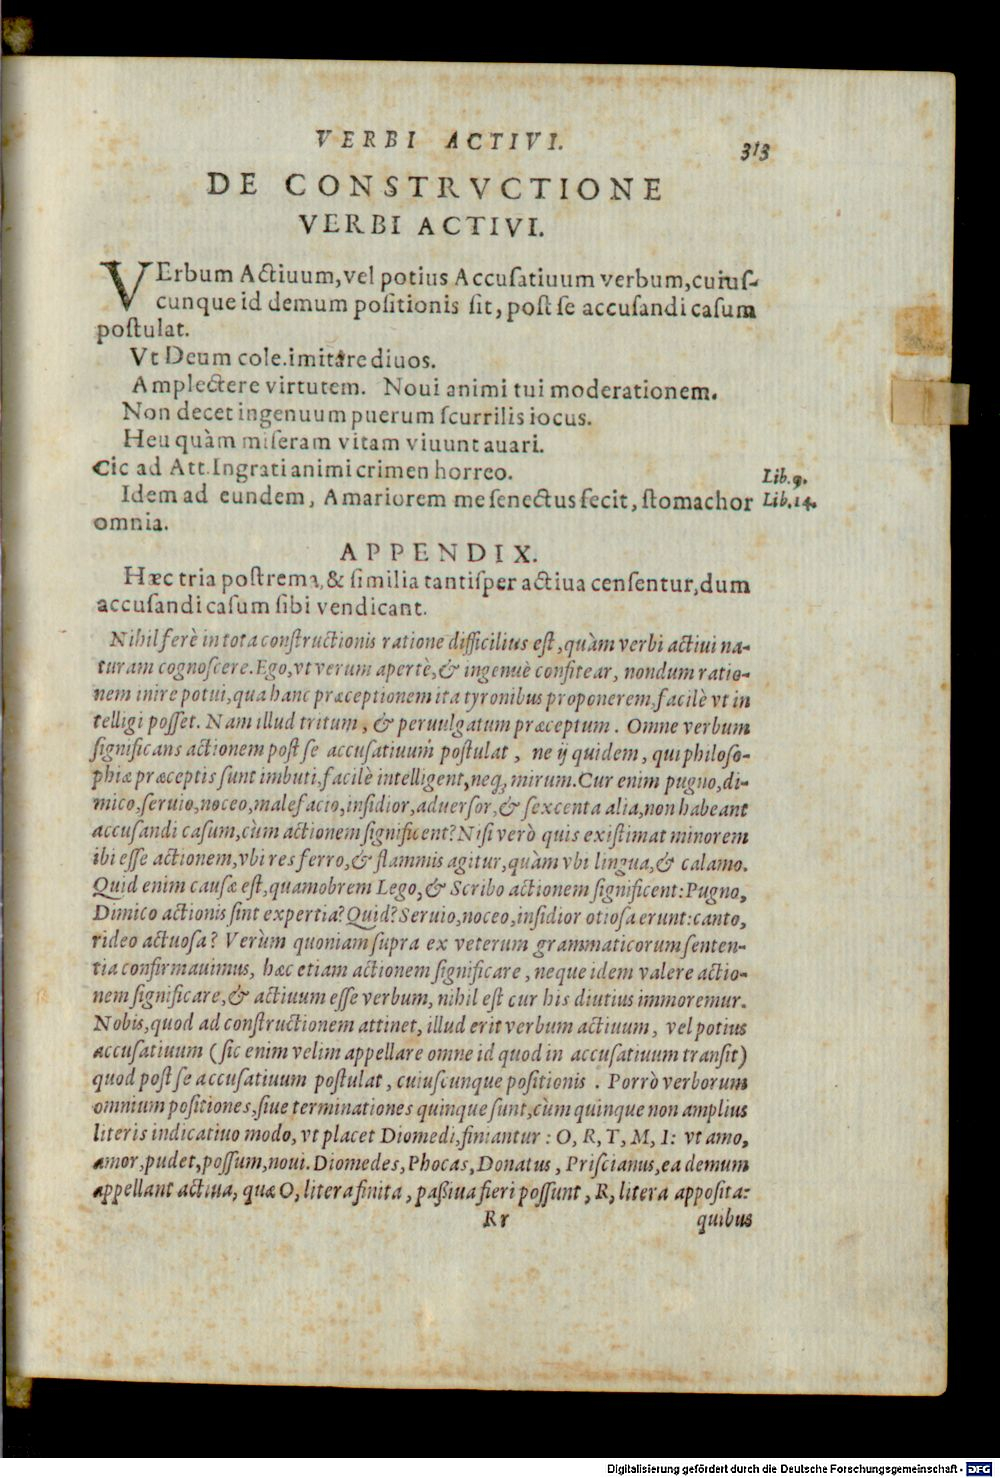 VERBI ACTIVI.
313
DE CONSTRVCTIONE
VERBI ACTIVI.
VErbum Actiuum, vel potius Accusatiuum verbum, cuiuſ-
cunque id demum poſitionis ſit, poſt ſe accuſandi caſum
poſtulat.
Vt Deum cole. imitare diuos.
Amplectere virtutem. Noui animi tui moderationem.
Non decet ingenuum puerum ſcurrilis iocus.
Heu quàm miſeram vitam viuunt auari.
Cic ad Att. Ingrati animi crimen horreo.
Lib. 9.
Idem ad eundem, Amariorem me ſenectus fecit, ſtomachor
Lib. 14.
omnia.
APPENDIX.
Hæc tria poſtrema, & ſimilia tantiſper actiua cenſentur, dum
accuſandi caſum ſibi vendicant.
Nihil ferè in tota conſtructionis ratione difficilius eſt, quàm verbi actiui na-
turam cognoſcere. Ego, vt verum apertè, & ingenuè confitear, nondum ratio-
nem inire potui, qua hanc præceptionem ita tyronibus proponerem, facilè vt in
telligi poſſet. Nam illud tritum, & peruulgatum præceptum. Omne verbum
ſignificans actionem poſt ſe accuſatiuum poſtulat, ne ij quidem, qui philoſo-
phiæ præceptis ſunt imbuti, facilè intelligent, neq; mirum. Cur enim pugno, di-
mico, ſeruio, noceo, malefacio, inſidior, aduerſor, & ſexcenta alia, non habeant
accuſandi caſum, cùm actionem ſignificent? Niſi verò quis exiſtimat minorem
ibi eſſe actionem, vbi res ferro, & flammis agitur, quàm vbi lingua, & calamo.
Quid enim cauſæ eſt, quamobrem Lego, & Scribo actionem ſignificent: Pugno,
Dimico actionis ſint expertia? Quid? Seruio, noceo, inſidior otioſa erunt: canto,
rideo actuoſa? Verùm quoniam ſupra ex veterum grammaticorum ſenten-
tia confirmauimus, hæc etiam actionem ſignificare, neque idem valere actio-
nem ſignificare, & actiuum eſſe verbum, nihil eſt cur his diutius immoremur.
Nobis, quod ad conſtructionem attinet, illud erit verbum actiuum, vel potius
accuſatiuum (ſic enim velim appellare omne id quod in accuſatiuum tranſit)
quod poſt ſe accuſatiuum poſtulat, cuiuſcunque poſitionis. Porrò verborum
omnium poſitiones, ſiue terminationes quinque ſunt, cùm quinque non amplius
literis indicatiuo modo, vt placet Diomedi, finiantur: O, R, T, M, I: vt amo,
amor, pudet, poſſum, noui. Diomedes, Phocas, Donatus, Priſcianus, ea demum
appellant actiua, quæ O, litera finita, paßiua fieri poſſunt, R, litera appoſita:
Rr
quibus
Digitalisierung gefördert durch die Deutsche Forschungsgemeinschaft - DFG